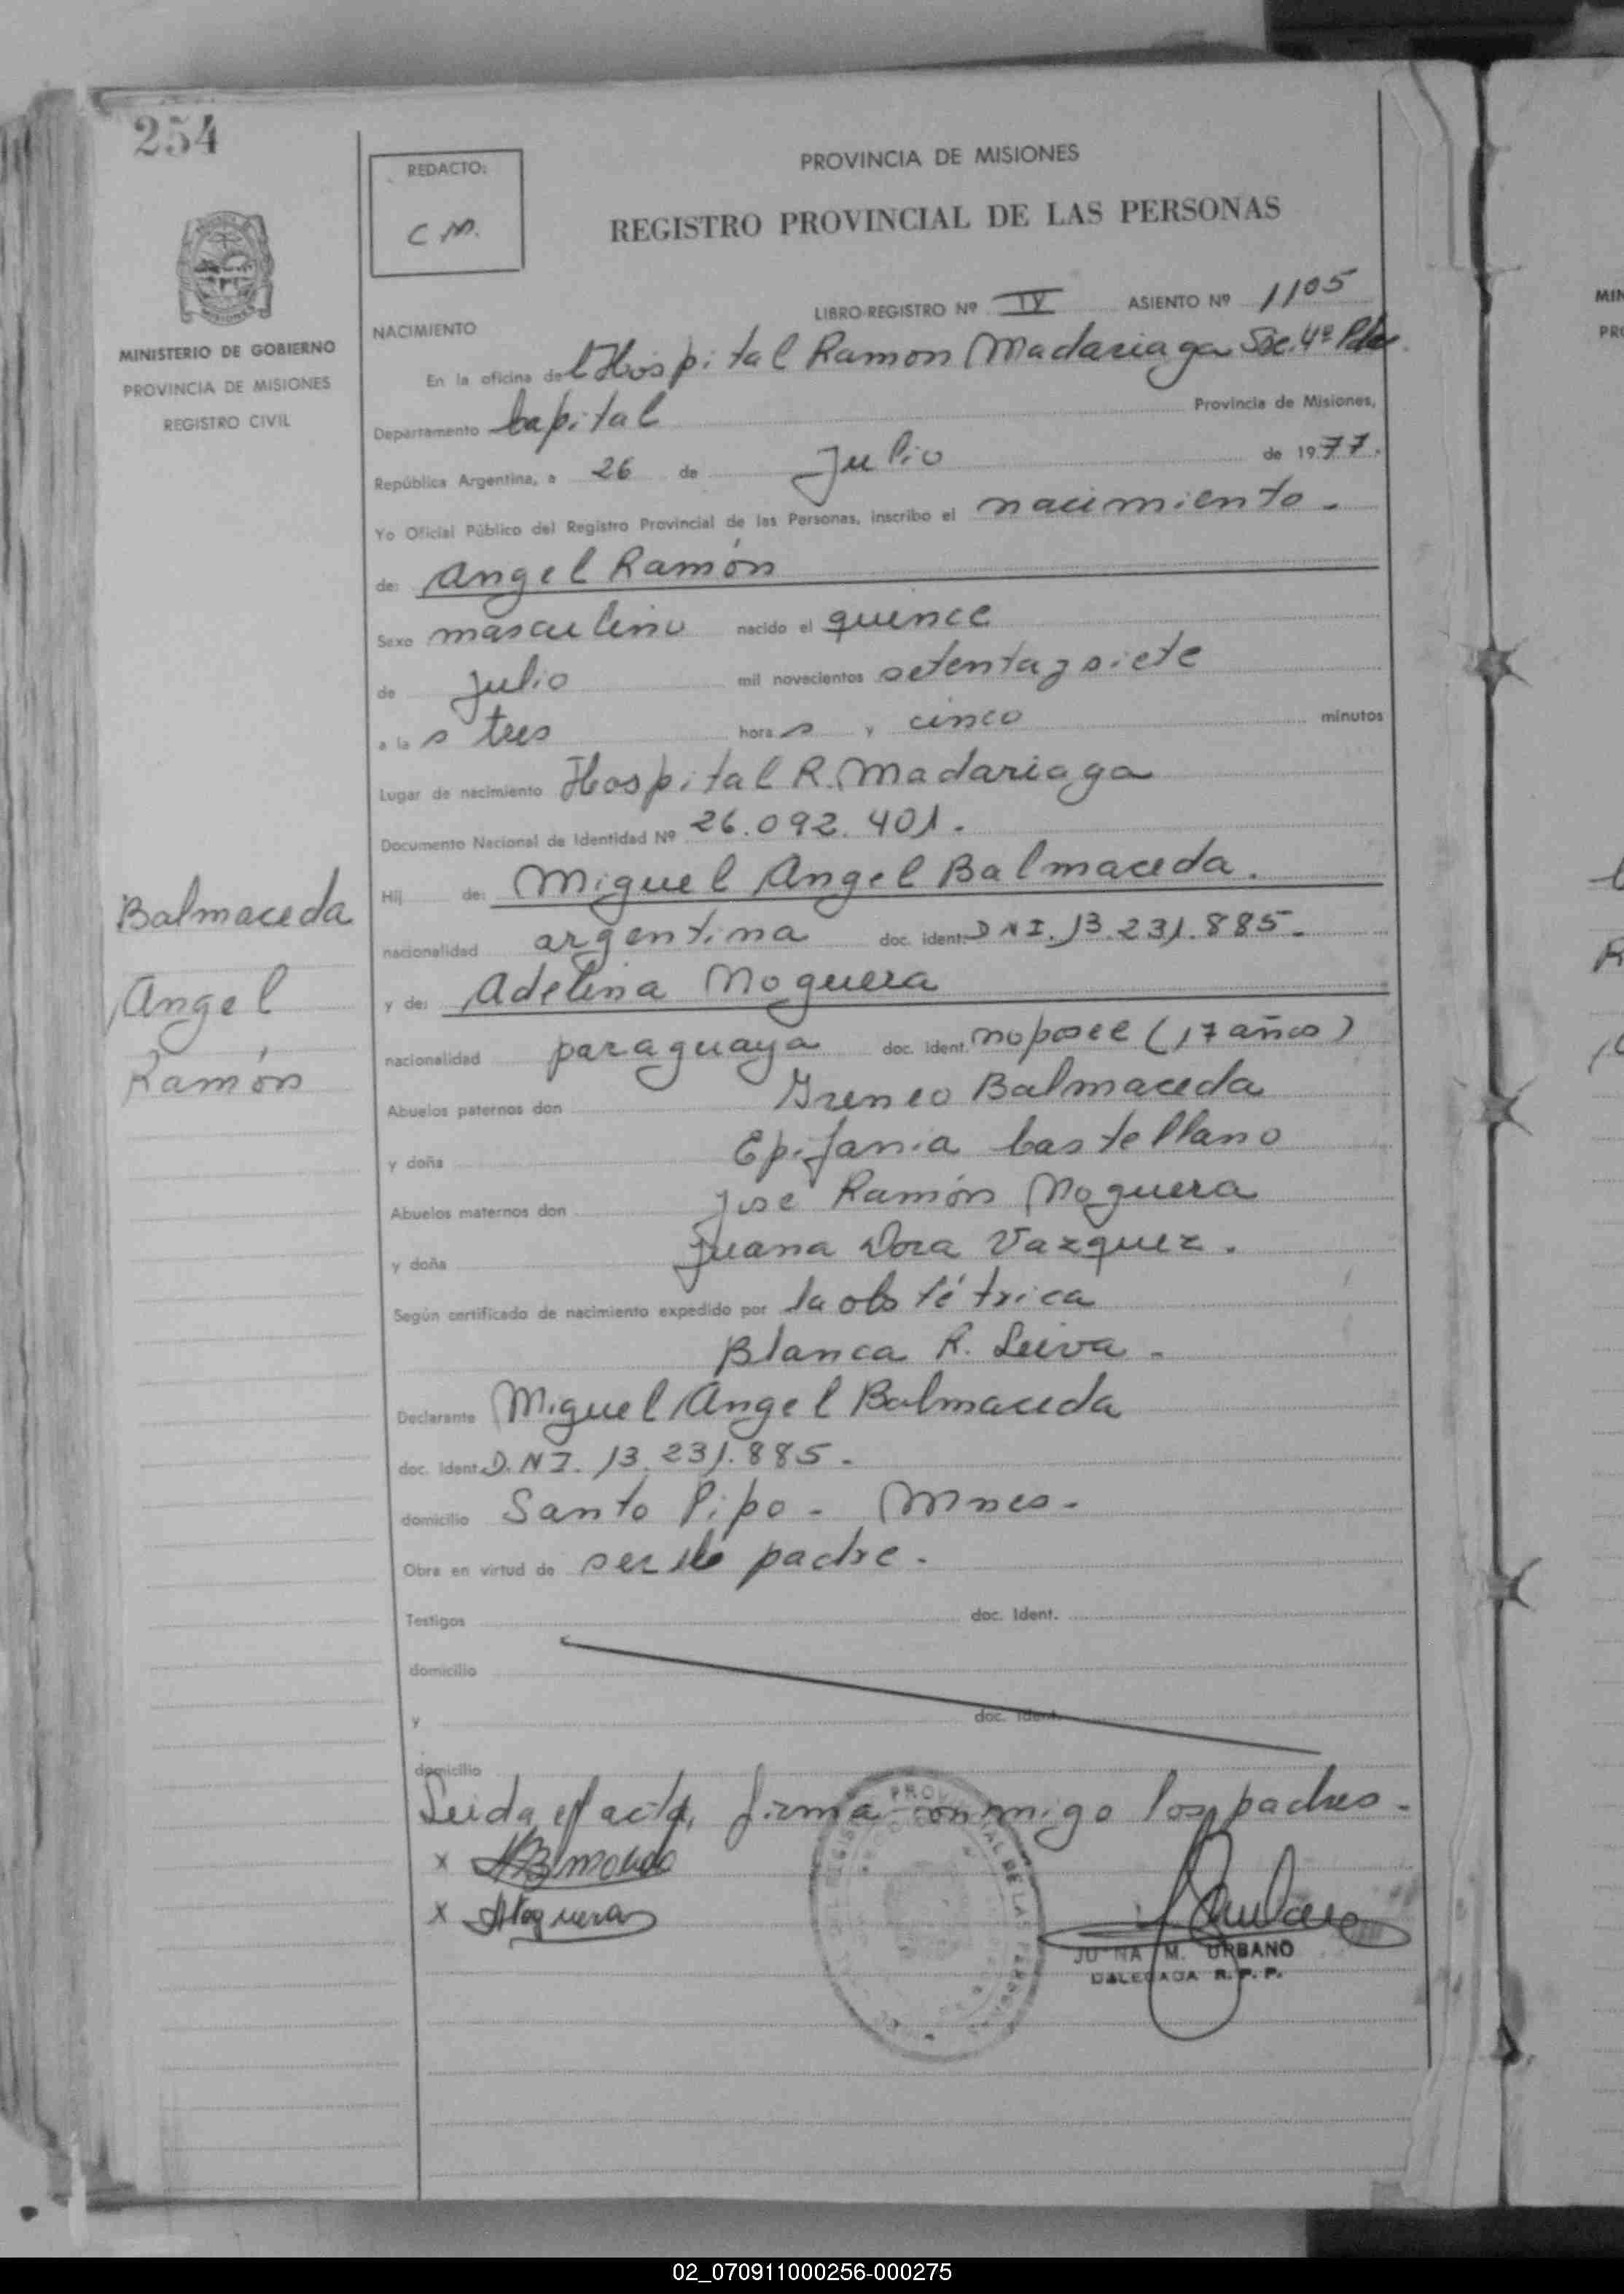 254
REDACTO:
C M.
PROVINCIA DE MISIONES
REGISTRO PROVINCIAL DE LAS PERSONAS
MINISTERIO DE GOBIERNO
PROVINCIA DE MISIONES
REGISTRO CIVIL
LIBRO-REGISTRO Nº IV ASIENTO Nº 1105
NACIMIENTO
En la oficina del Hospital Ramon Madariaga Sec. 4ª Pdas.
Departamento Capital Provincia de Misiones,
República Argentina, a 26 de Julio de 1977.
Yo Oficial Público del Registro Provincial de las Personas, inscribo el nacimiento.
de: Angel Ramón
Sexo masculino nacido el quince
de Julio mil novecientos setenta y siete
a las tres horas y cinco minutos
Lugar de nacimiento Hospital R. Madariaga
Documento Nacional de Identidad Nº 26.092.401.
Hij de: Miguel Angel Balmaceda.
nacionalidad argentina doc. ident. DNI. 13.231.885.
y de: Adelina Noguera
nacionalidad paraguaya doc. ident. no posee (17 años)
Abuelos paternos don Ireneo Balmaceda
y doña Epifania Castellano
Abuelos maternos don José Ramón Noguera
y doña Juana Dora Vazquez.
Según certificado de nacimiento expedido por la obstétrica
Blanca R. Leiva.
Declarante Miguel Angel Balmaceda
doc. ident. D.N.I. 13.231.885.
domicilio Santo Pipo - Mnes.
Obra en virtud de ser el padre.
Testigos doc. Ident.
domicilio
y doc. Ident.
domicilio
Leida el acta, firma conmigo los padres.
x
x ANoguera
JUANA M. URBANO
DELEGADA R. P. P.
Balmaceda
Angel
Ramón
02_070911000256-000275